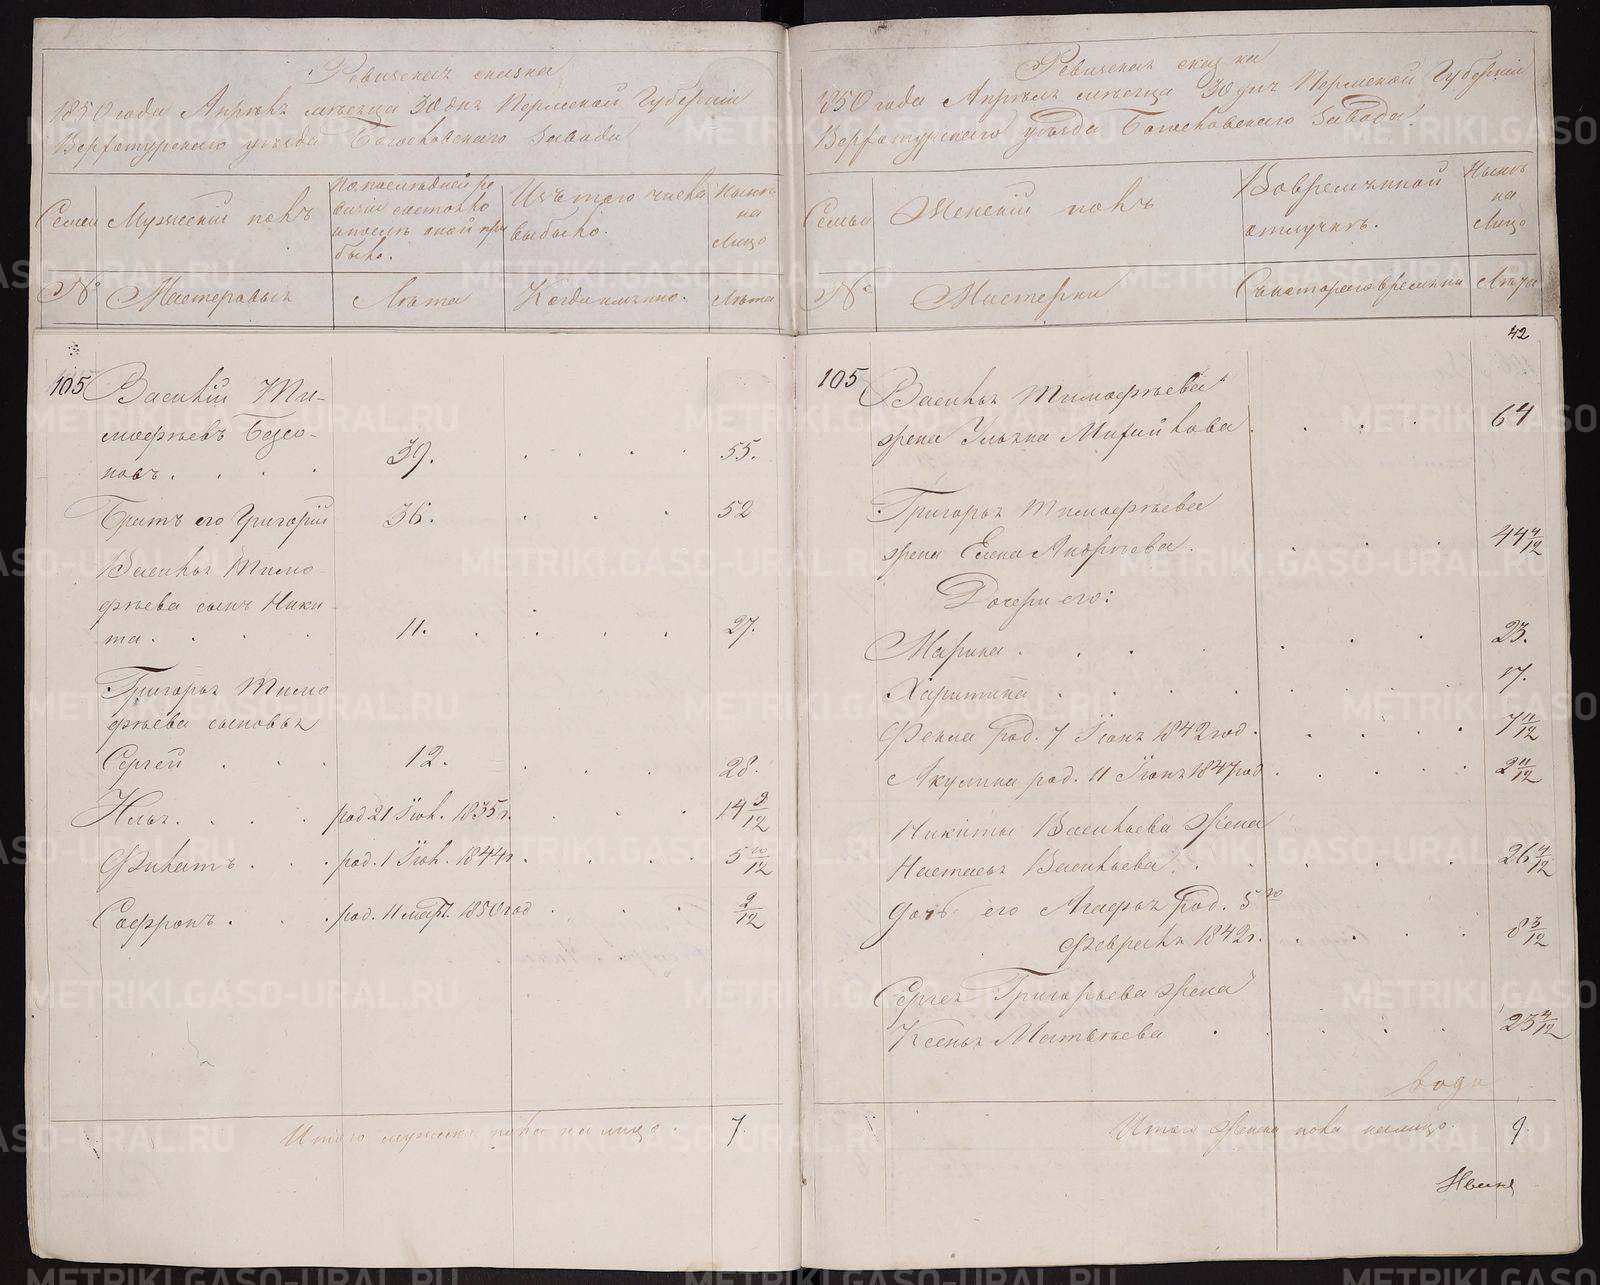 Ревизская сказка
1850 года Апреля месяца 30 дня Пермской Губернии
Верхотурского уезда Богословского Завода
Семьи
Мужеский полъ
По последней ре
визіи состояло
и после оной при
было.
Изъ того числа
выбыло.
Ныне
на
Лицо
№
Мастеровыя
Лета
Когда именно.
Лета
105
Василій Ти-
мофеевъ
39.
55.
Братъ его Григорій
36.
52
Василья Тимо
феева сынъ Ники
та.
11.
27.
Григорья Тимо
феева сыновья
Сергей
12.
28.
Илья.
род 21 Іюл. 1835 г.
14 9/12
Филатъ
род. 1 Іюл. 1844 г.
5 10/12
Софронъ.
род. 11 март. 1850 год
2/12
Итого мужеска пола на лицо.
7.
Ревизская сказка
1850 года Апреля месяца 30 дня Пермской Губерніи
Верхотурского уезда Богословского Завода.
Семьи
Женскій полъ
Во временной
отлучке.
Ныне
на
Лицо
№
Мастерки
Съ котораго времени
Лета
42
105
Василья Тимофеева
жена Ульяна Михайлова.
64
Григорья Тимофеева
жена Елена Андреева.
44 4/12
Дочери его:
Марина.
23.
Харитина
17.
Фекла род. 7 Іюня 1842 год.
7 11/12
Акулина род. 11 Іюня 1847 год
2 11/12
Никиты Васильева жена
Настасья Васильева.
26 4/12
Дочь его Агафья род. 5го
Февраля 1842 г.
8 3/12
Сергея Григорьева жена
Ксенья Матвеева
23 4/12
Итого женска пола на лицо.
9.
METRIKI.GASO-URAL.RU